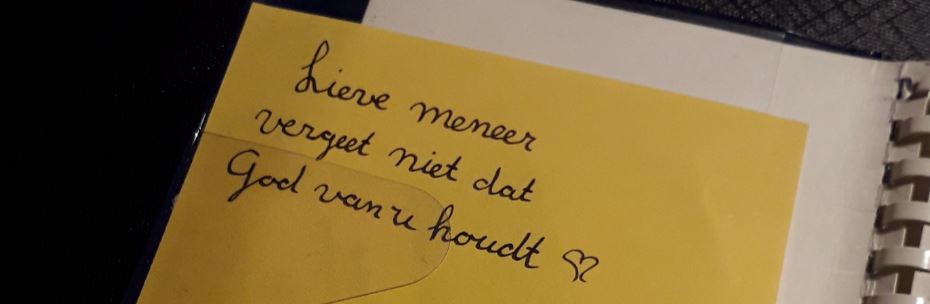 Lieve meneer
vergeet niet dat
God van u houdt ♡